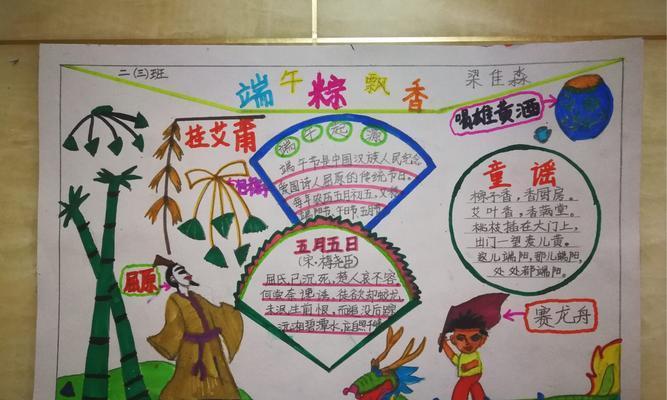 二(三)班
端午粽飘香
梁佳淼
挂艾甭
喝雄黄酒
端午起源
端午节是中国汉族人民纪念
爱国诗人屈原的传统节日。
每年农历五月初五，又称
端阳节、午日节、五月节
童谣
粽子香，香厨房。
艾叶香，香满堂。
桃枝插在大门上，
出门一望麦儿黄。
这儿端阳，那儿端阳，
处处都端阳。
五月五日
(宋·梅尧臣)
屈氏已沉死，楚人哀不容。
何尝奈谗谤，徒欲却蛟龙。
未泯生前恨，而追没后踪
沅湘碧潭水，应自照千峰
屈原
赛龙舟